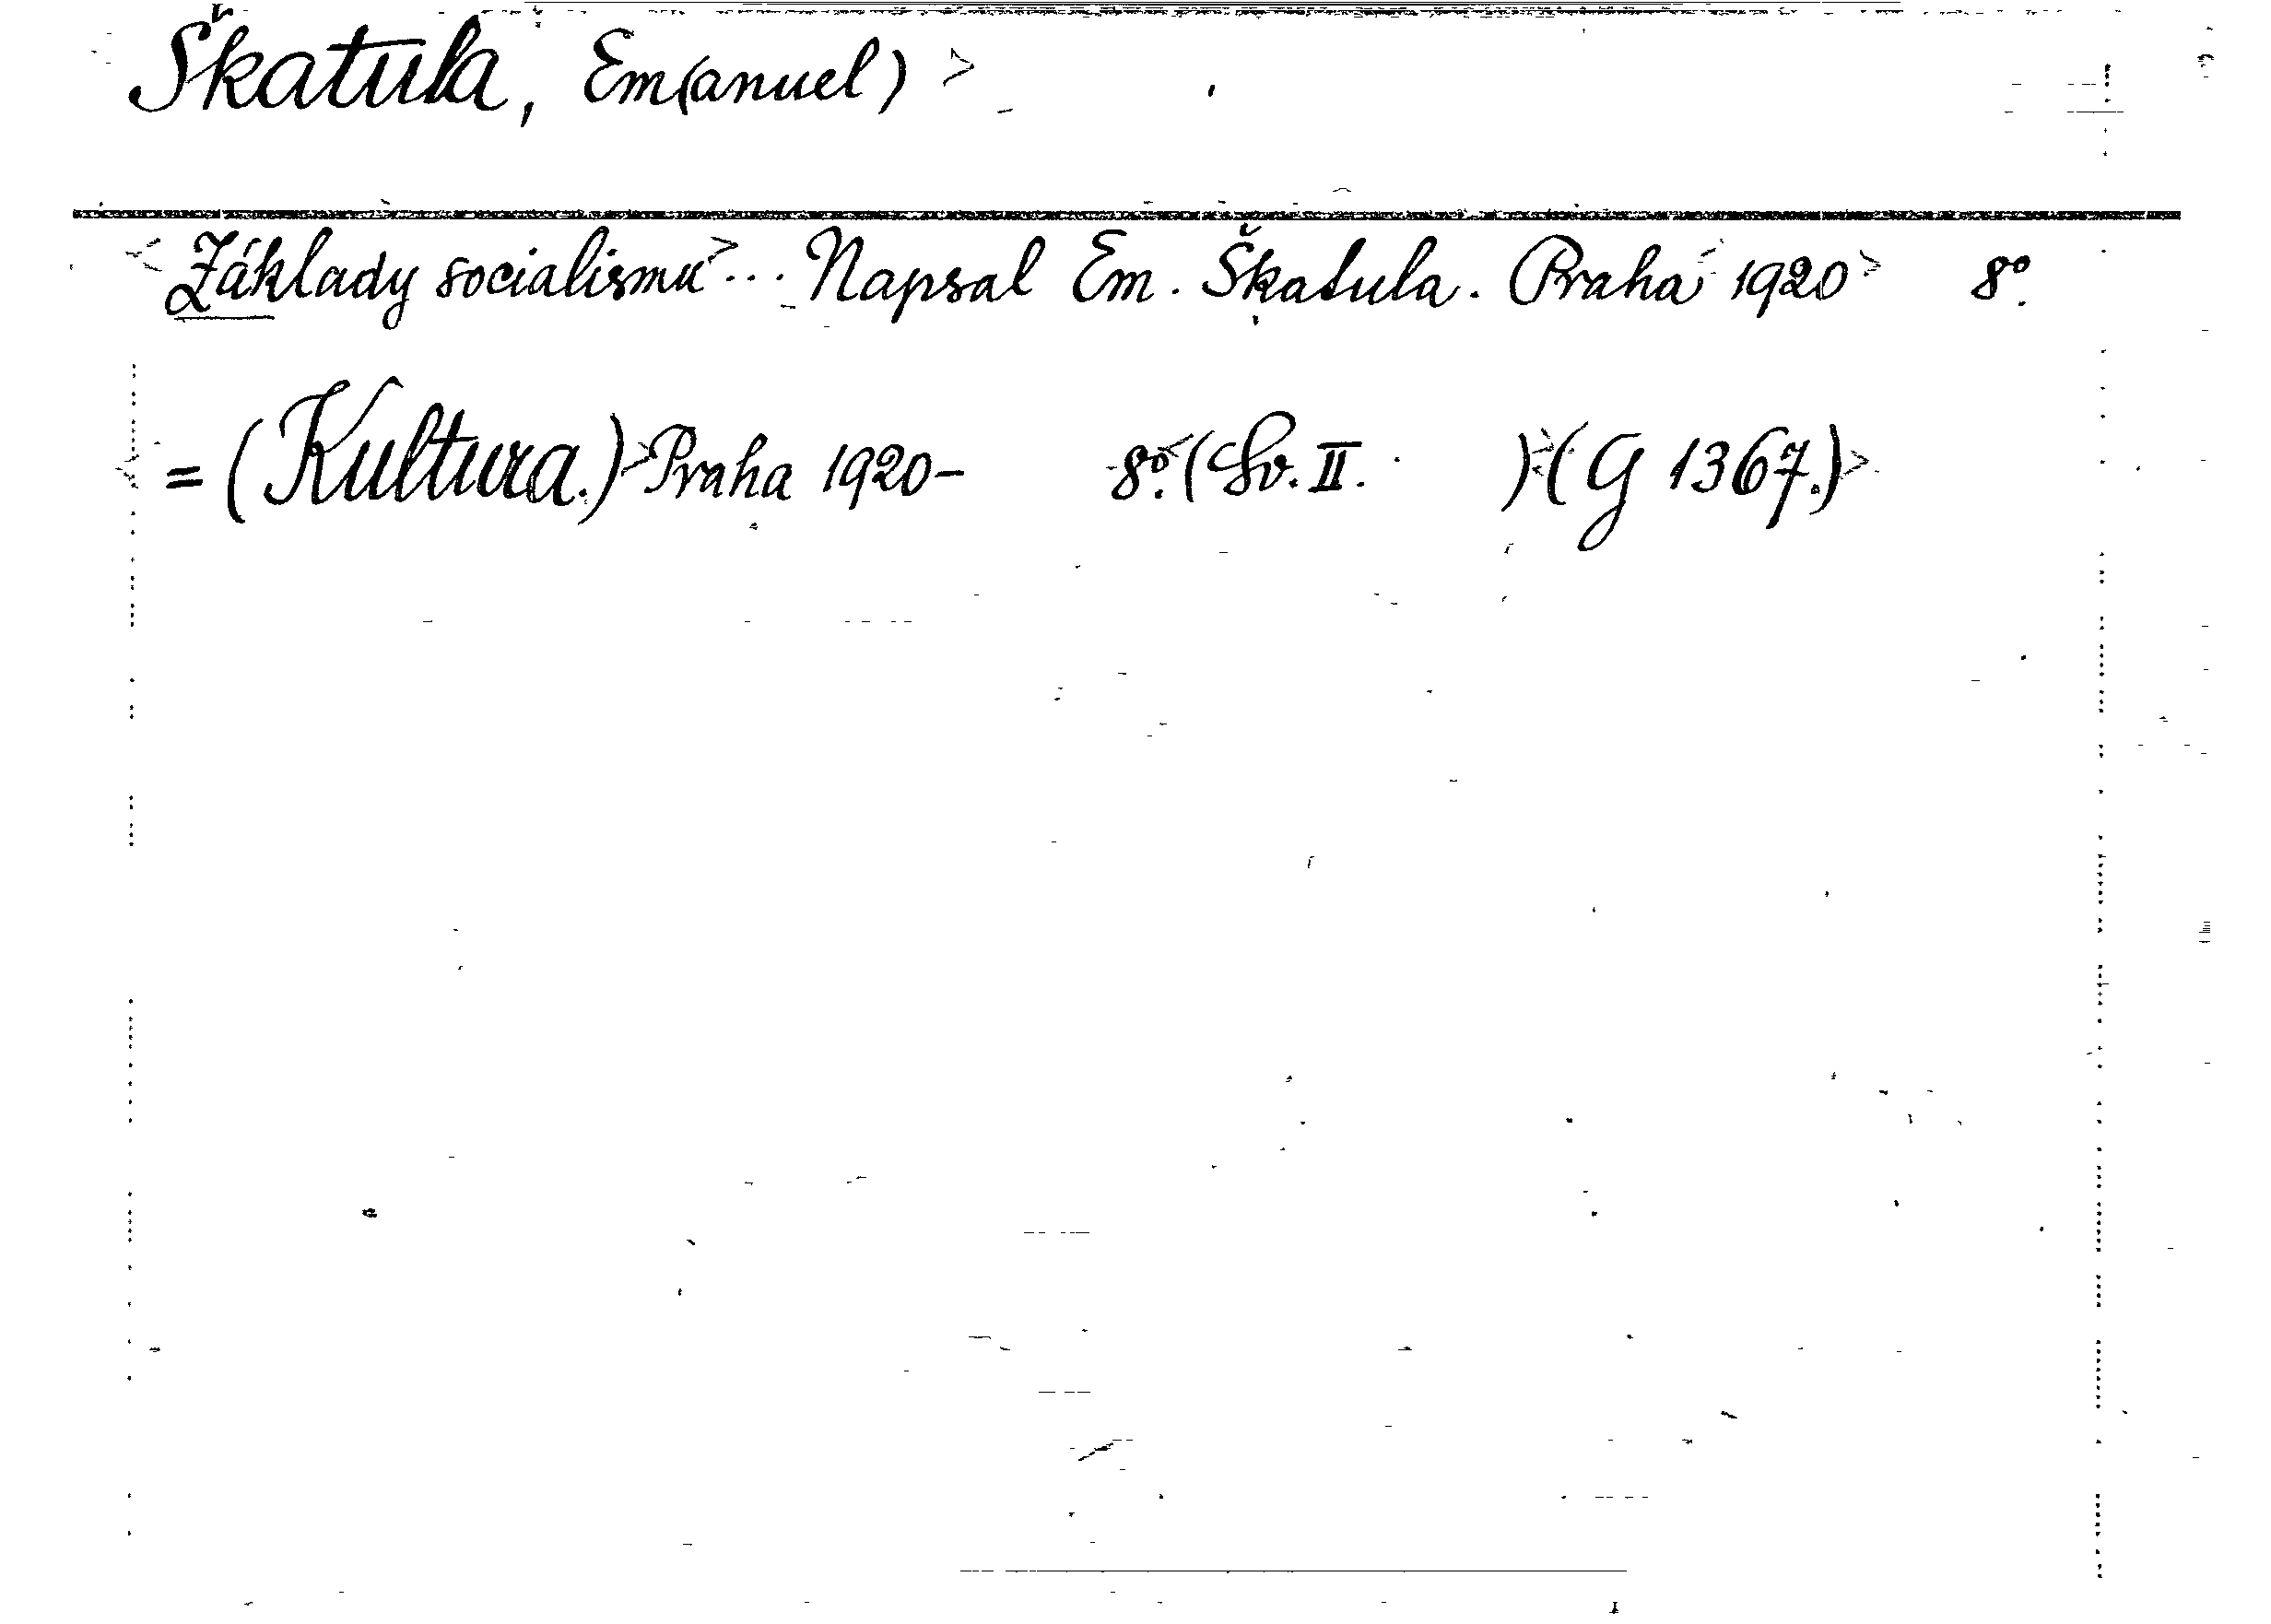 Škatula, Em(anuel) >
< Základy socialismu > ... Napsal Em. Škatula. Praha 1920 > 8°.
< = (Kultura.) > Praha 1920- 8°. < (Sv. II. ) > < (G 1367.) >